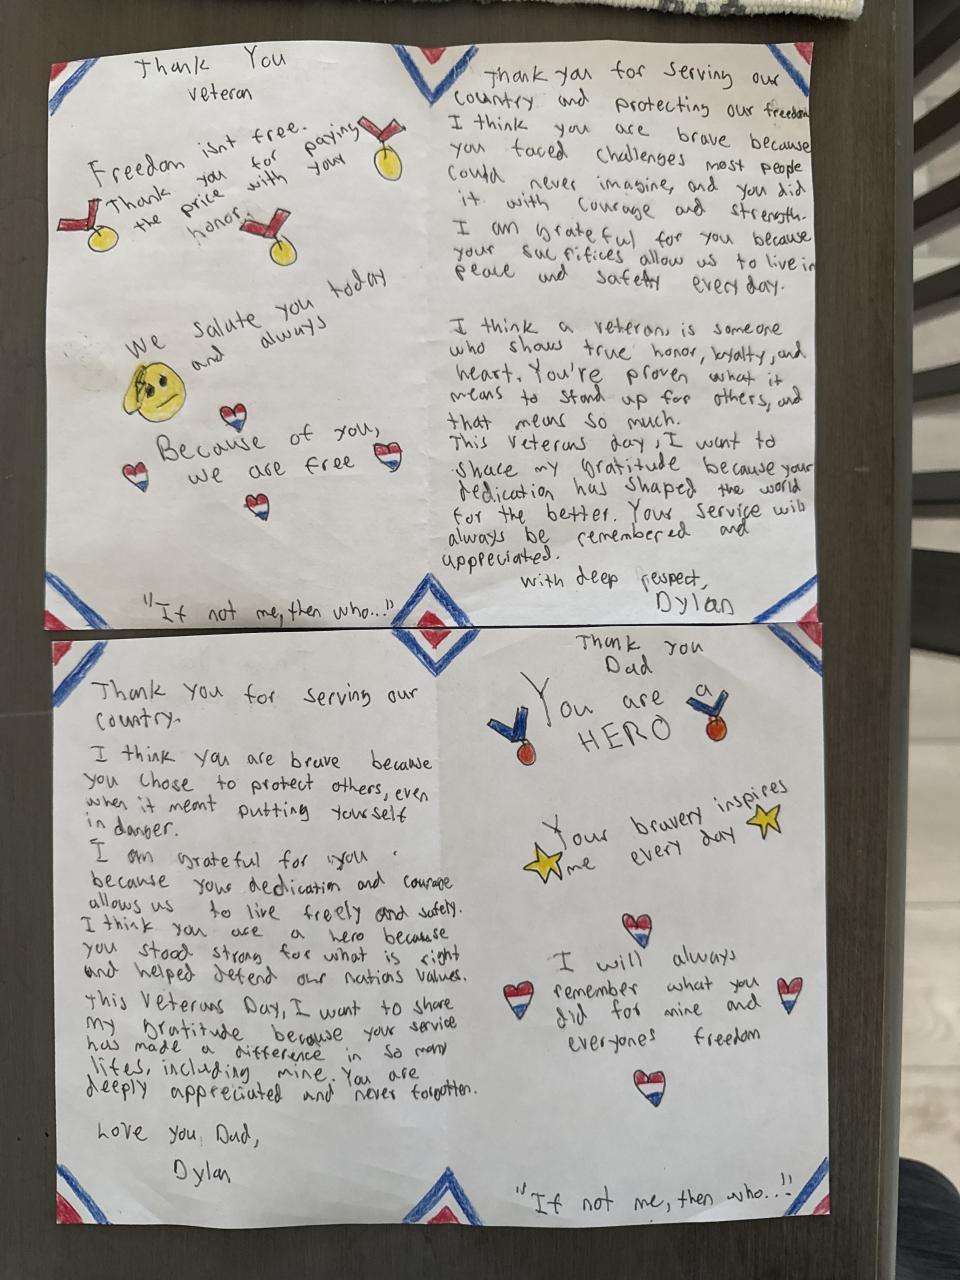 Thank You
veteran
Freedom isnt free.
Thank you for paying
the price with your
honor.
We salute you today
and always
Because of you,
we are free
"If not me, then who..."
Thank you for serving our
country and protecting our freedom
I think you are brave because
you faced challenges most people
could never imagine, and you did
it with courage and strength.
I am grateful for you because
your sacrifices allow us to live in
peace and safety every day.
I think a veterans is someone
who shows true honor, loyalty, and
heart. You're proven what it
means to stand up for others, and
that means so much.
This Veterans day, I want to
share my gratitude because your
dedication has shaped the world
for the better. Your service will
always be remembered and
appreciated.
with deep respect,
Dylan
Thank you for serving our
country.
I think you are brave because
you chose to protect others, even
when it meant putting yourself
in danger.
I am grateful for you
because your dedication and courage
allows us to live freely and safely.
I think you are a hero because
you stood strong for what is right
and helped defend our nations values.
This Veterans Day, I want to share
my gratitude because your service
has made a difference in so many
lifes, including mine. You are
deeply appreciated and never forgotten.
Love you, Dad,
Dylan
Thank you
Dad
You are a
HERO
Your bravery inspires
me every day
I will always
remember what you
did for mine and
everyones freedom
"If not me, then who..!"